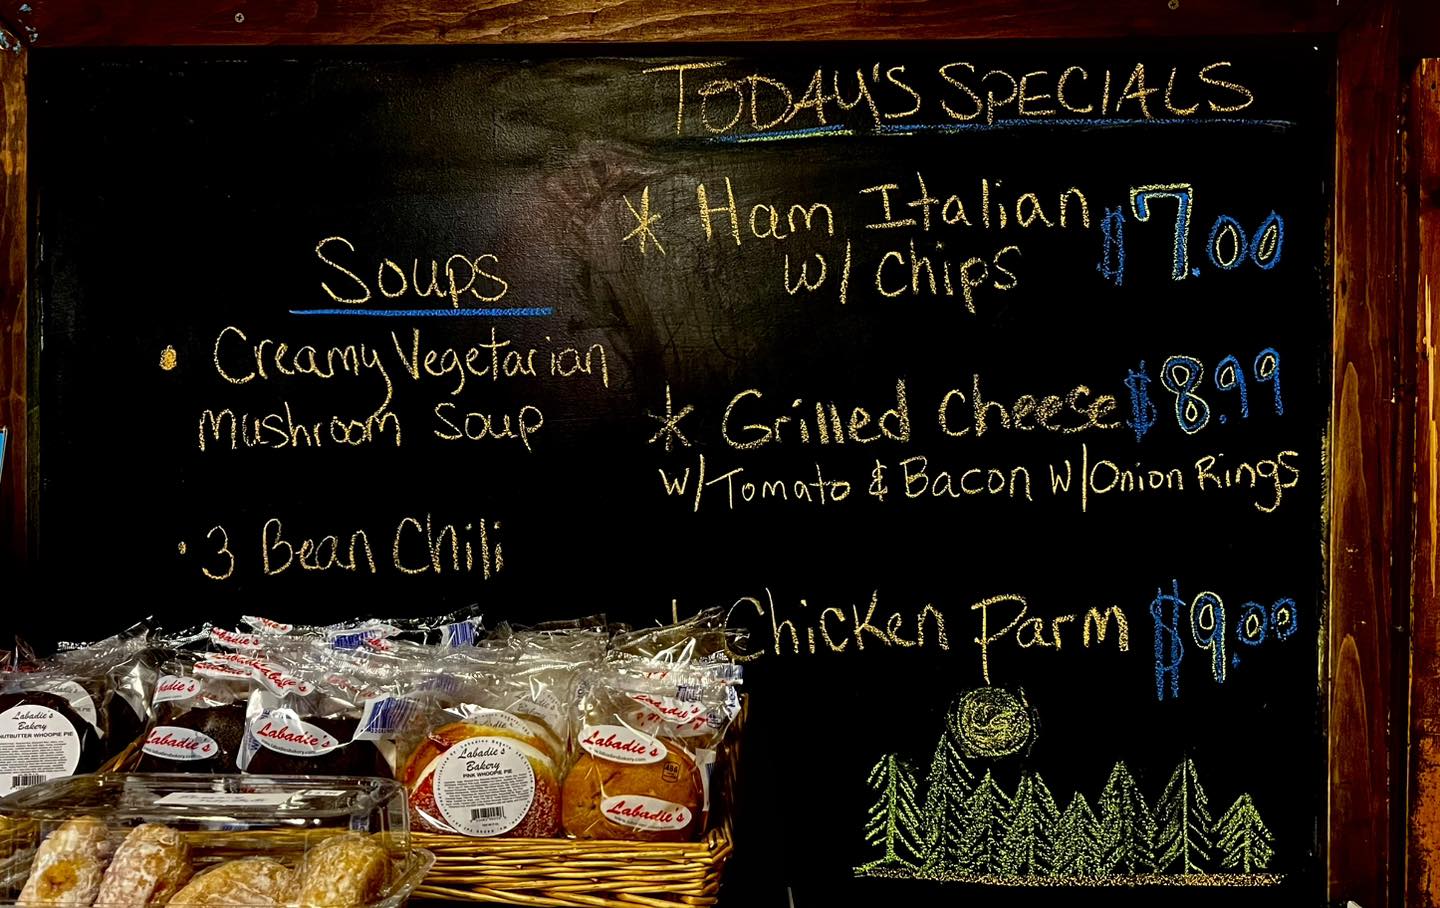 TODAY'S SPECIALS
* Ham Italian $7.00
w/ chips
* Grilled Cheese $8.99
w/Tomato & Bacon w/Onion Rings
Chicken Parm $9.00
Soups
• Creamy Vegetarian
Mushroom Soup
• 3 Bean Chili
Labadie's
Bakery
NUTBUTTER WHOOPIE PIE
Labadie's
Labadie's
Labadie's
Bakery
PINK WHOOPIE PIE
Labadie's
Labadie's